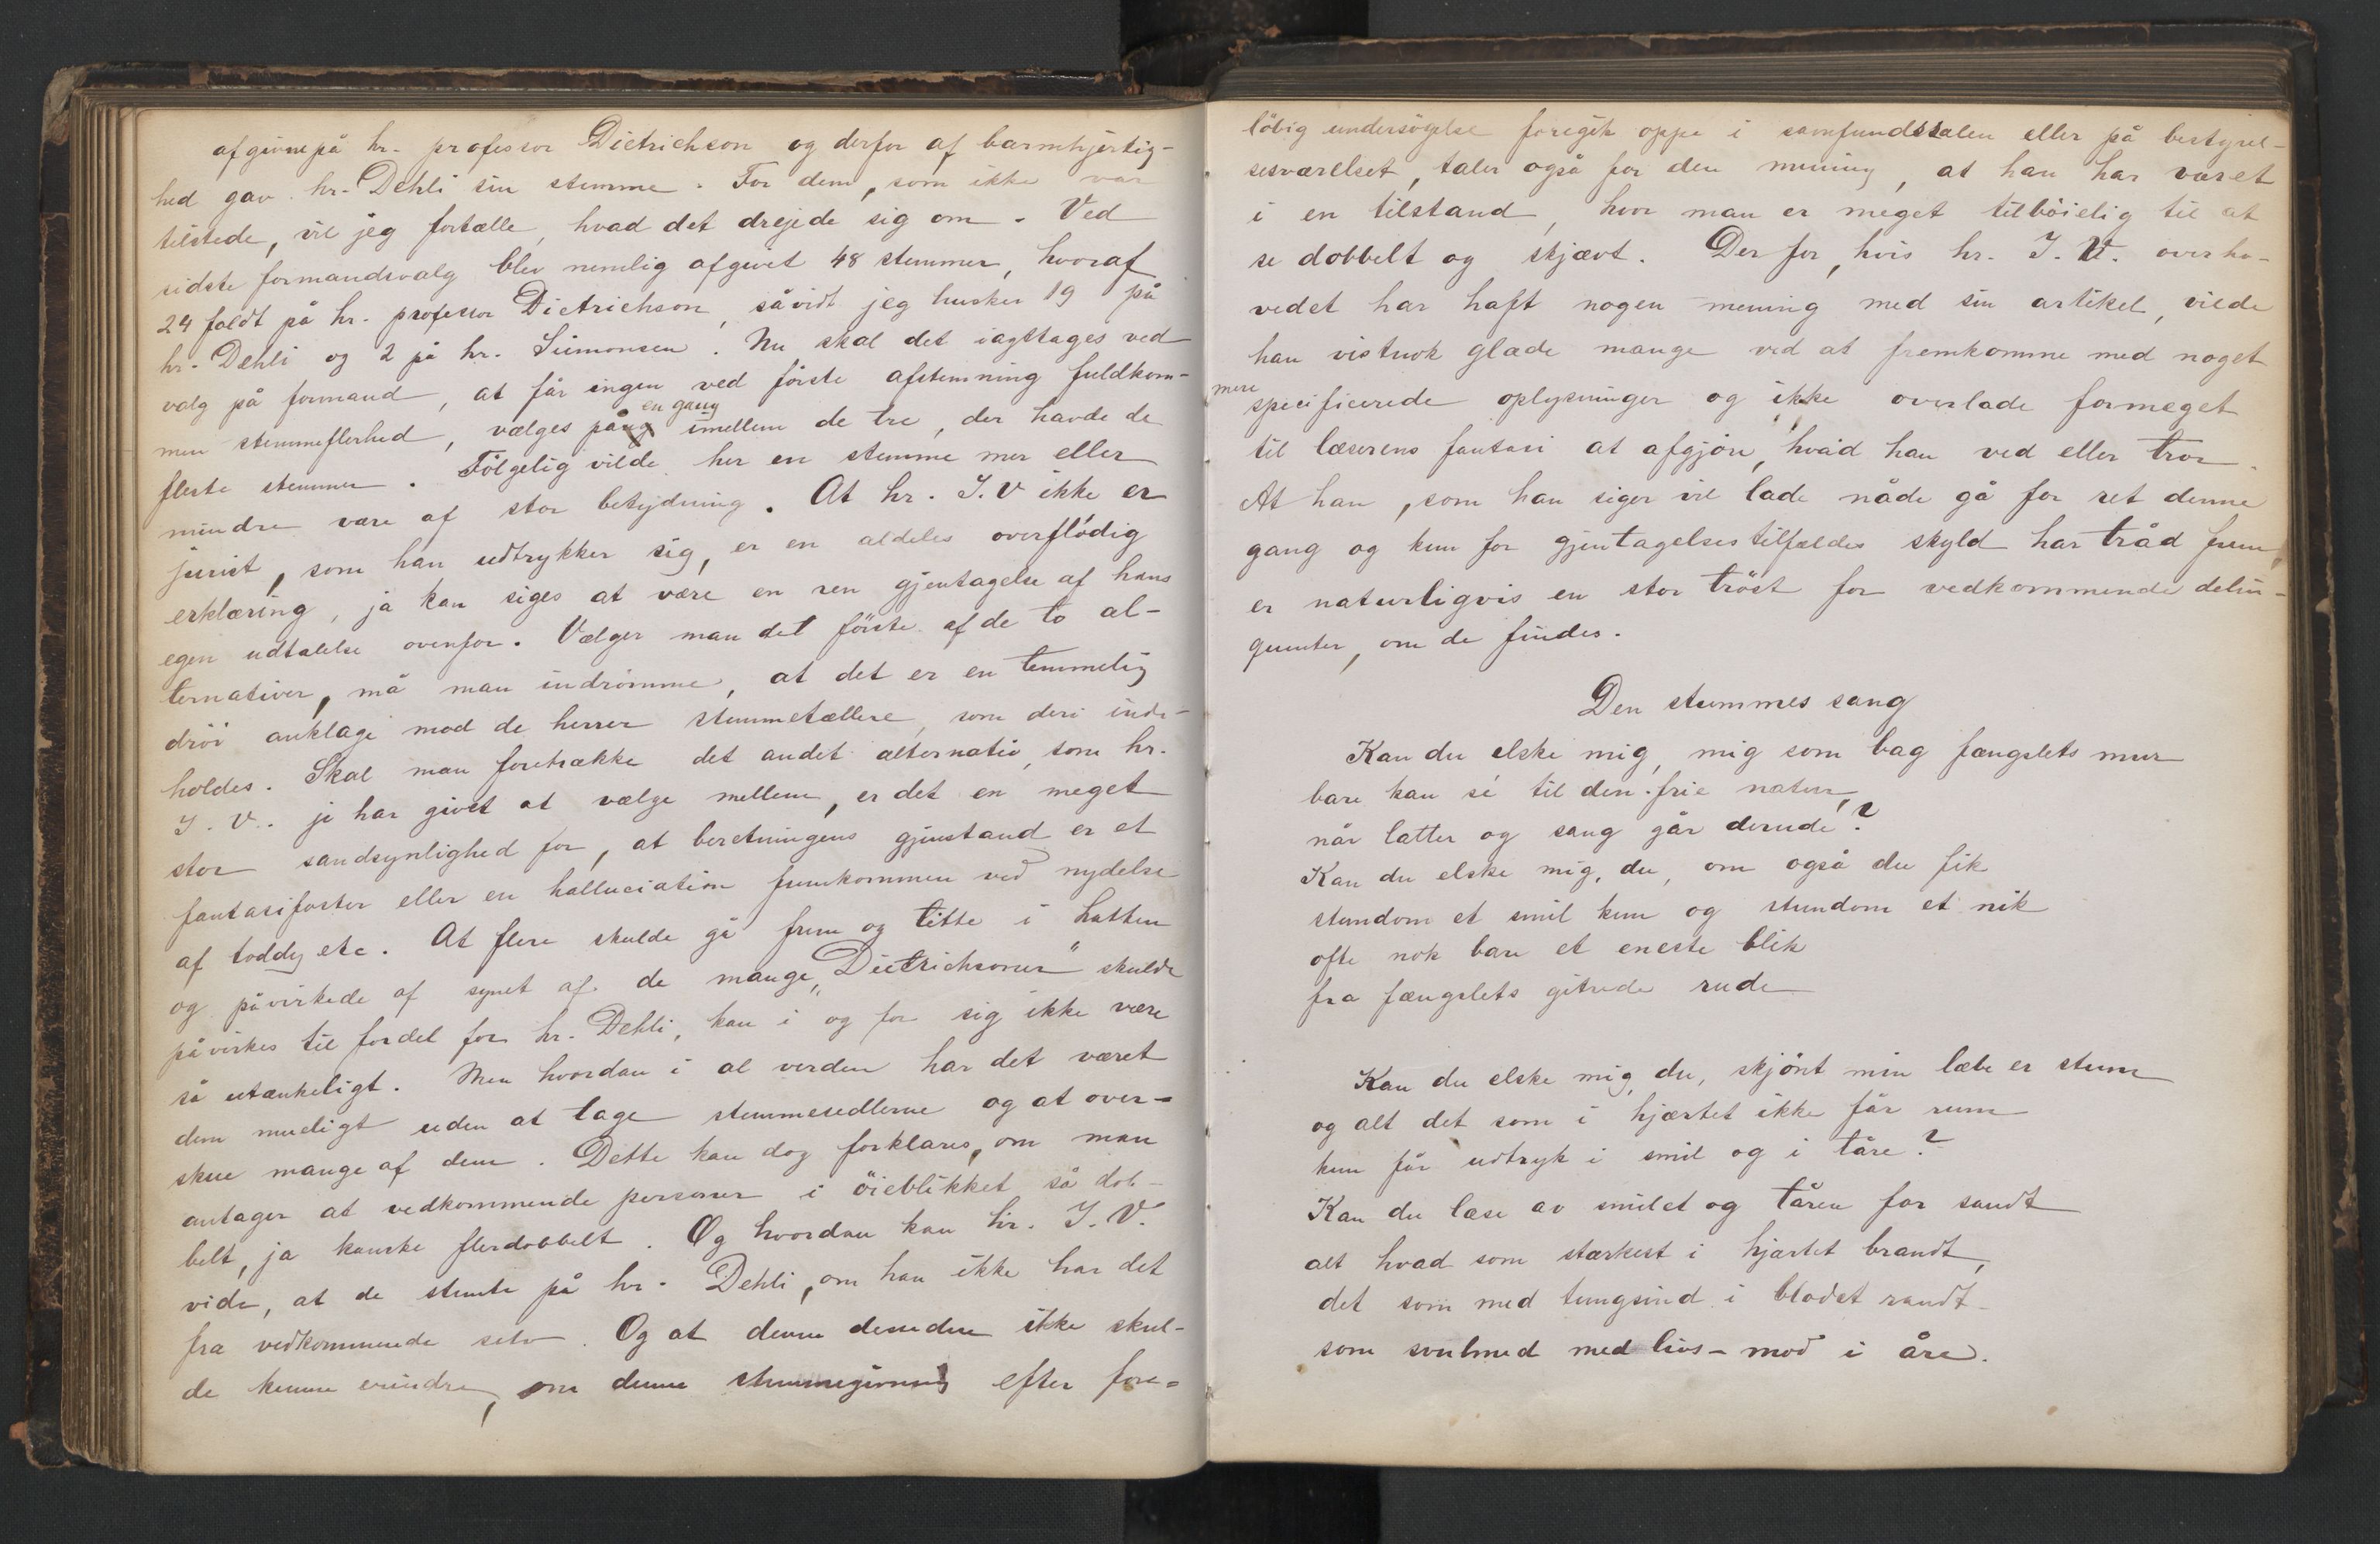 afgivne på hr. professor Dietrichson og derfor af barmhjertig-
hed gav hr. Dehli sin stemme. For dem, som ikke var
tilstede, vil jeg fortælle, hvad det drejede sig om. Ved
sidste formandsvalg blev nemlig afgivet 48 stemmer, hvoraf
24 faldt på hr. professor Dietrichson, såvidt jeg husker 19 på
hr. Dehli og 2 på hr. Siimonsen. Nu skal det iagttages ved
valg på formand, at får ingen ved förste afstemning fuldkom-
men stemmeflerhed, vælges på en gang imellem de tre, der havde de
fleste stemmer. Fölgelig vilde her en stemme mer eller
mindre være af stor betydning. At hr. J. V ikke er
jurist, som han udtrykker sig, er en aldeles overflödig
erklæring, ja kan siges at være en ren gjentagelse af hans
egen udtalelse ovenfor. Vælger man det förste af de to al-
ternativer, må man indrömme, at det er en temmelig
dröi anklage mod de herrer stemmetællere, som deri inde-
holdes. Skal man foretrække det andet alternativ, som hr.
J. V. jo har givet at vælge mellem, er det en meget
stor sandsynlighed for, at beretningens gjenstand er et
fantasifoster eller en halluciation fremkommen ved nydelse
af toddy etc. At flere skulde gå frem og titte i hatten
og påvirkede af synet af de mange „Dietrichsoner“ skulde
påvirkes til fordel for hr. Dehli, kan i og for sig ikke være
så utænkeligt. Men hvordan i al verden har det været
dem muligt uden at tage stemmesedlerne og at over-
skue mange af dem. Dette kan dog forklares, om man
antager at vedkommende personer i öieblikket så dob-
belt, ja kanske flerdobbelt. Og hvordan kan hr. J. V.
vide, at de stemte på hr. Dehli, om han ikke har det
fra vedkommende selv. Og at denne desuden ikke skul-
de kunne erindre, om denne stemmegivning efter fore-
löbig undersögelse foregik oppe i samfundssalen eller på bestyrel-
sesværelset, taler også for den mening, at han har været
i en tilstand, hvor man er meget tilböielig til at
se dobbelt og skjævt. Derfor, hvis hr. J. V. overho-
vedet har haft nogen mening med sin artikel, vilde
han vistnok glæde mange ved at fremkomme med noget
mere specificerede oplysninger og ikke overlade formeget
til læserens fantasi at afgjöre, hvad han ved eller tror.
At han, som han siger vil lade nåde gå for ret denne
gang og kun for gjentagelsestilfældes skyld har tråd frem,
er naturligvis en stor tröst for vedkommende delin-
quenter, om de findes.
Den stummes sang
Kan du elske mig, mig som bag fængslets mur
bare kan sé til den frie natur,
når latter og sang går derude?
Kan du elske mig, du, om også du fik
stundom et smil kun og stundom et nik
ofte nok bare et eneste blik
fra fængslets gitrede rude
Kan du elske mig, du, skjönt min læbe er stum
og alt det som i hjærtet ikke får rum
kun får udtryk i smil og i tåre?
Kan du læse av smilet og tåren for sandt
alt hvad som stærkest i hjærtet brandt,
det som med tungsind i blodet randt
som svulmed med livs-mod i åre.